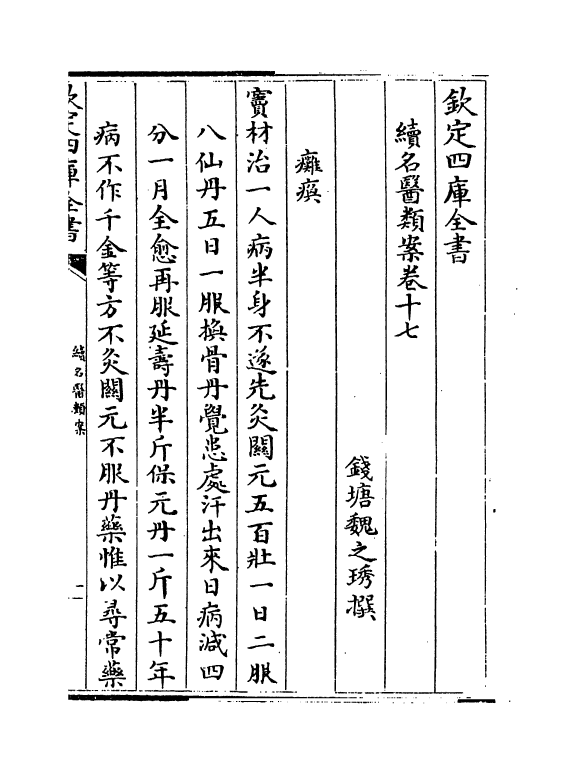 欽定四庫全書
續名醫類案卷十七
錢塘魏之琇撰
癱瘓
竇材治一人病半身不遂先灸關元五百壯一日二服
八仙丹五日一服換骨丹覺患處汗出來日病減四
分一月全愈再服延壽丹半斤保元丹一斤五十年
病不作千金等方不灸關元不服丹藥惟以尋常藥
欽定四庫全書
續名醫類案